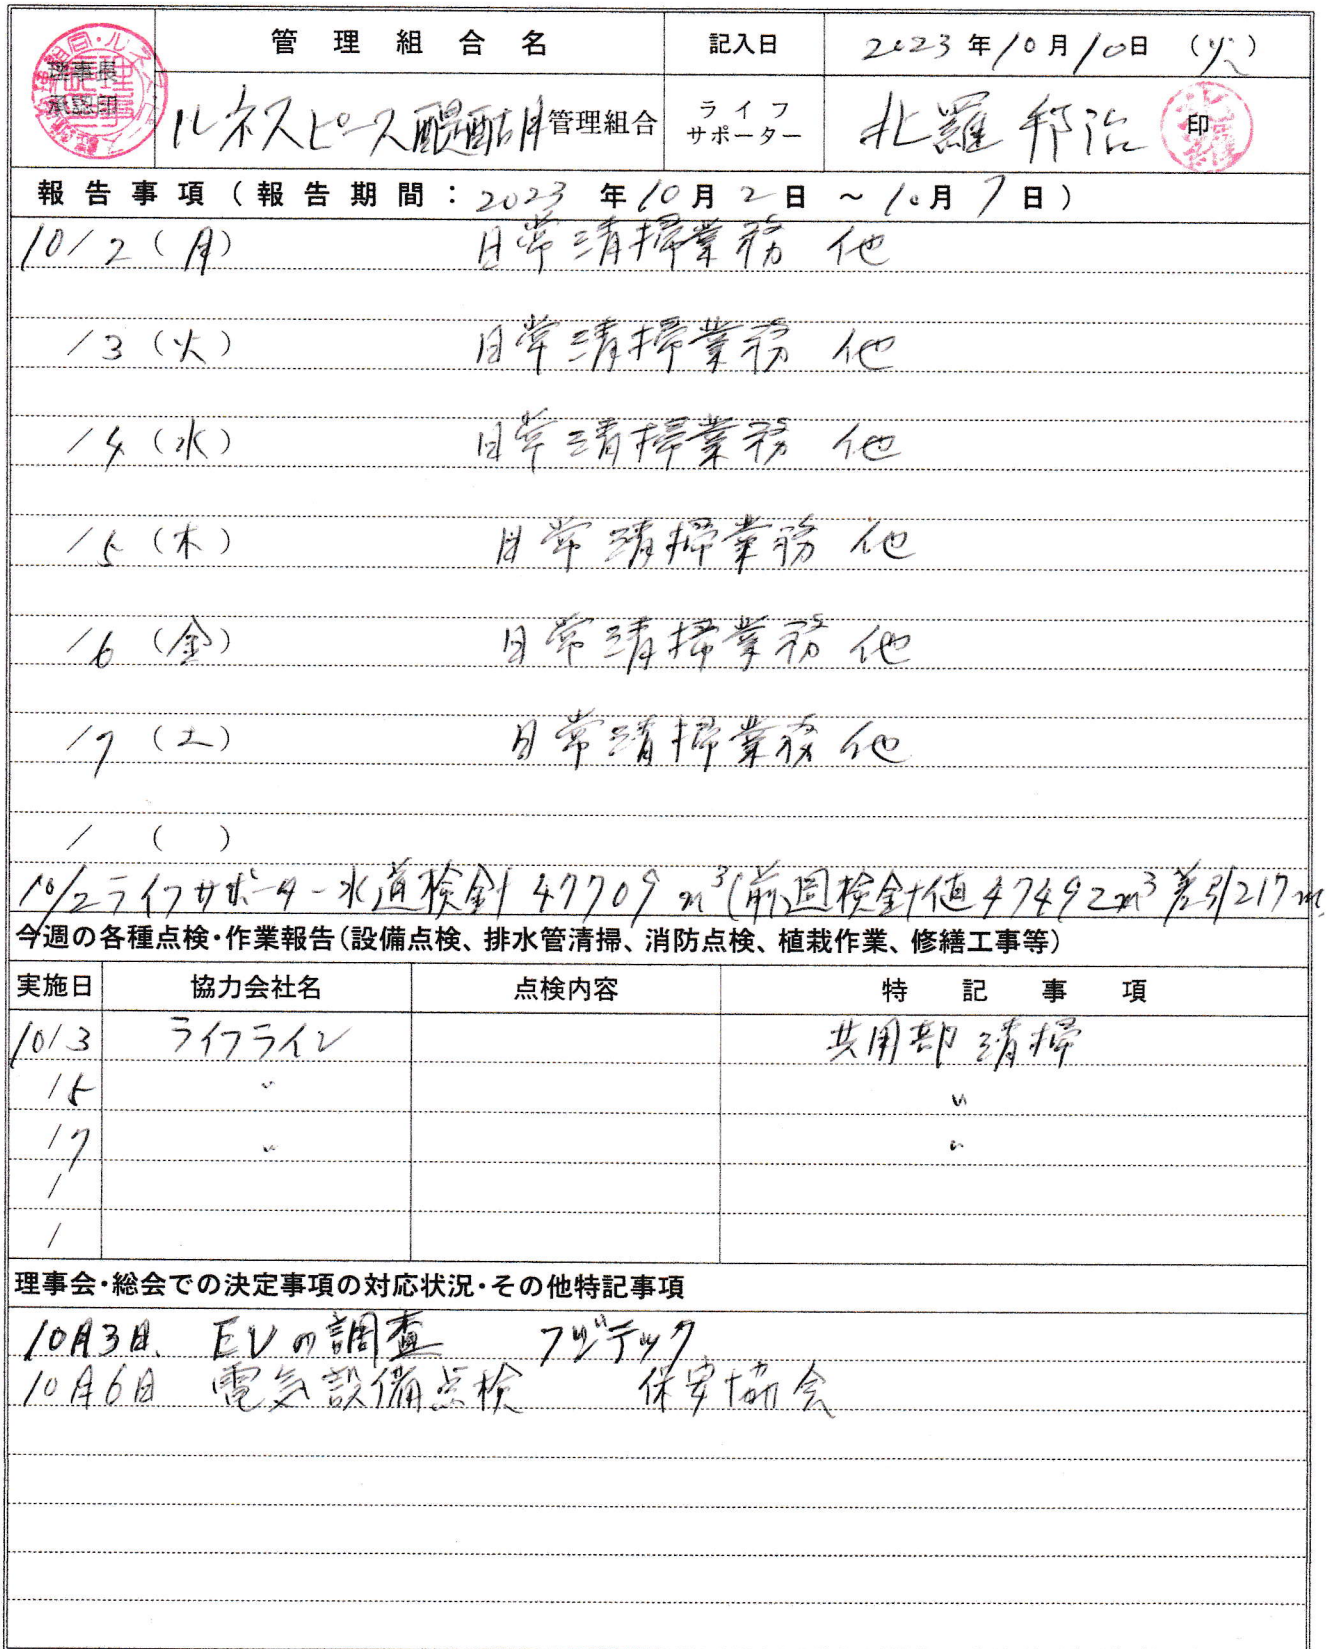 理事長
承認印
管理組合名
ルネスピース醍醐管理組合
記入日
2023年10月10日 (火)
ライフ
サポーター
北羅 邦治 印
報告事項(報告期間:2023年10月2日 ~10月7日)
10/2(月) 日常清掃業務 他
/3(火) 日常清掃業務 他
/4(水) 日常清掃業務 他
/5(木) 日常清掃業務 他
/6(金) 日常清掃業務 他
/7(土) 日常清掃業務 他
/ ( )
10/2ライフサポーター水道検針 47709m³(前週検針値47492m³差引217m
今週の各種点検・作業報告(設備点検、排水管清掃、消防点検、植栽作業、修繕工事等)
実施日 協力会社名 点検内容 特記事項
10/3 ライフライン 共用部清掃
/5 〃 〃
/7 〃 〃
/
/
理事会・総会での決定事項の対応状況・その他特記事項
10月3日、EVの調査 フジテック
10月6日 電気設備点検 保安協会